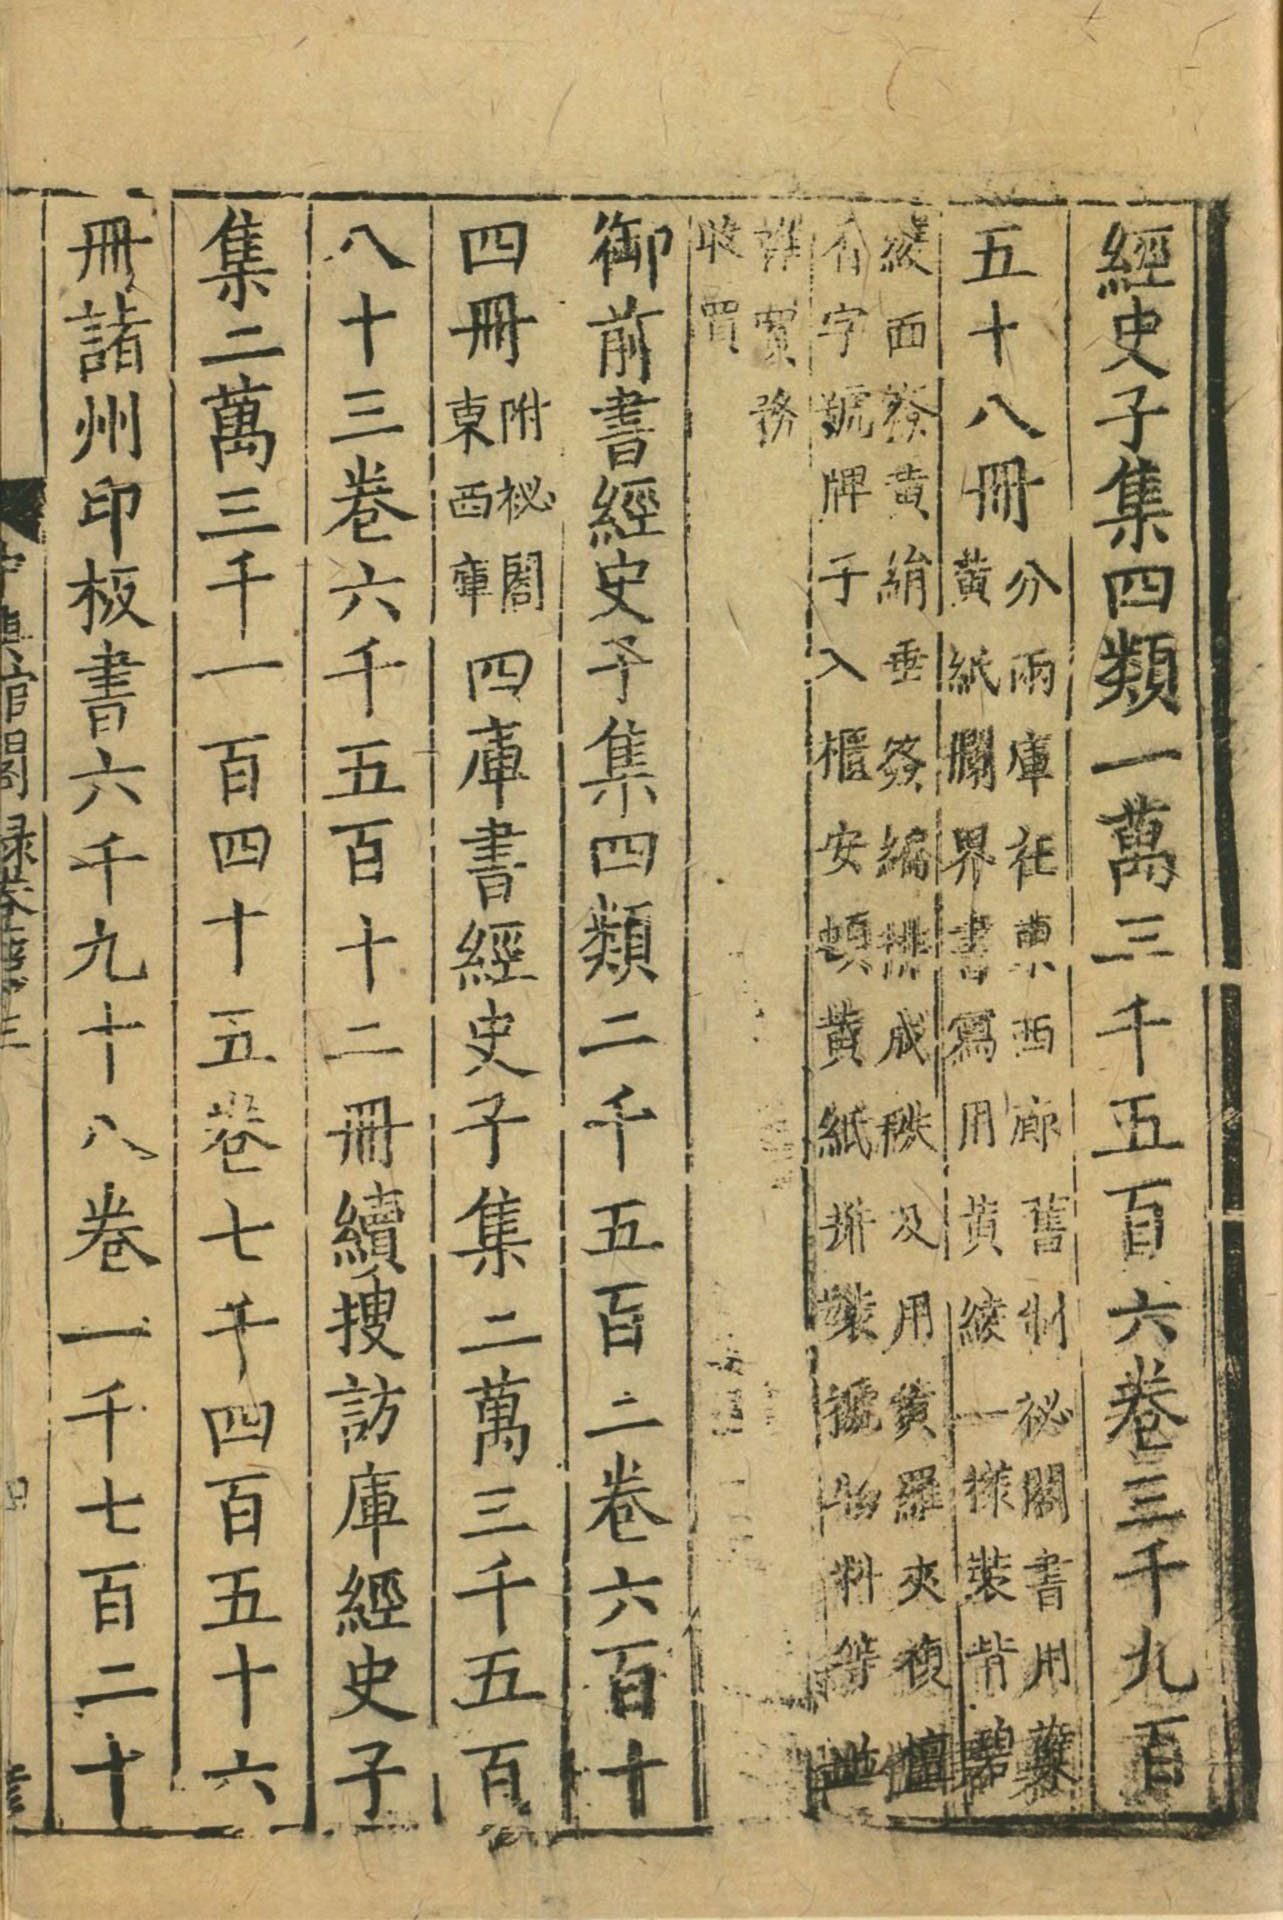 經史子集四類一萬三千五百六卷三千九百
五十八冊
分兩庫在東西廊舊制祕閣書用
黃紙闌界書寫用黃綾一樣裝背碧
綾面簽黃絹垂簽編排成秩及用黃羅夾複檀
有字號牌子入櫃安頓黃紙拼裝褫物料等並
雜買務
收買
御前書經史子集四類二千五百二卷六百十
四冊
附祕閣
東西庫
四庫書經史子集二萬三千五百
八十三卷六千五百十二冊續搜訪庫經史子
集二萬三千一百四十五卷七千四百五十六
冊諸州印板書六千九十八卷一千七百二十
中興館閣録卷第三
四